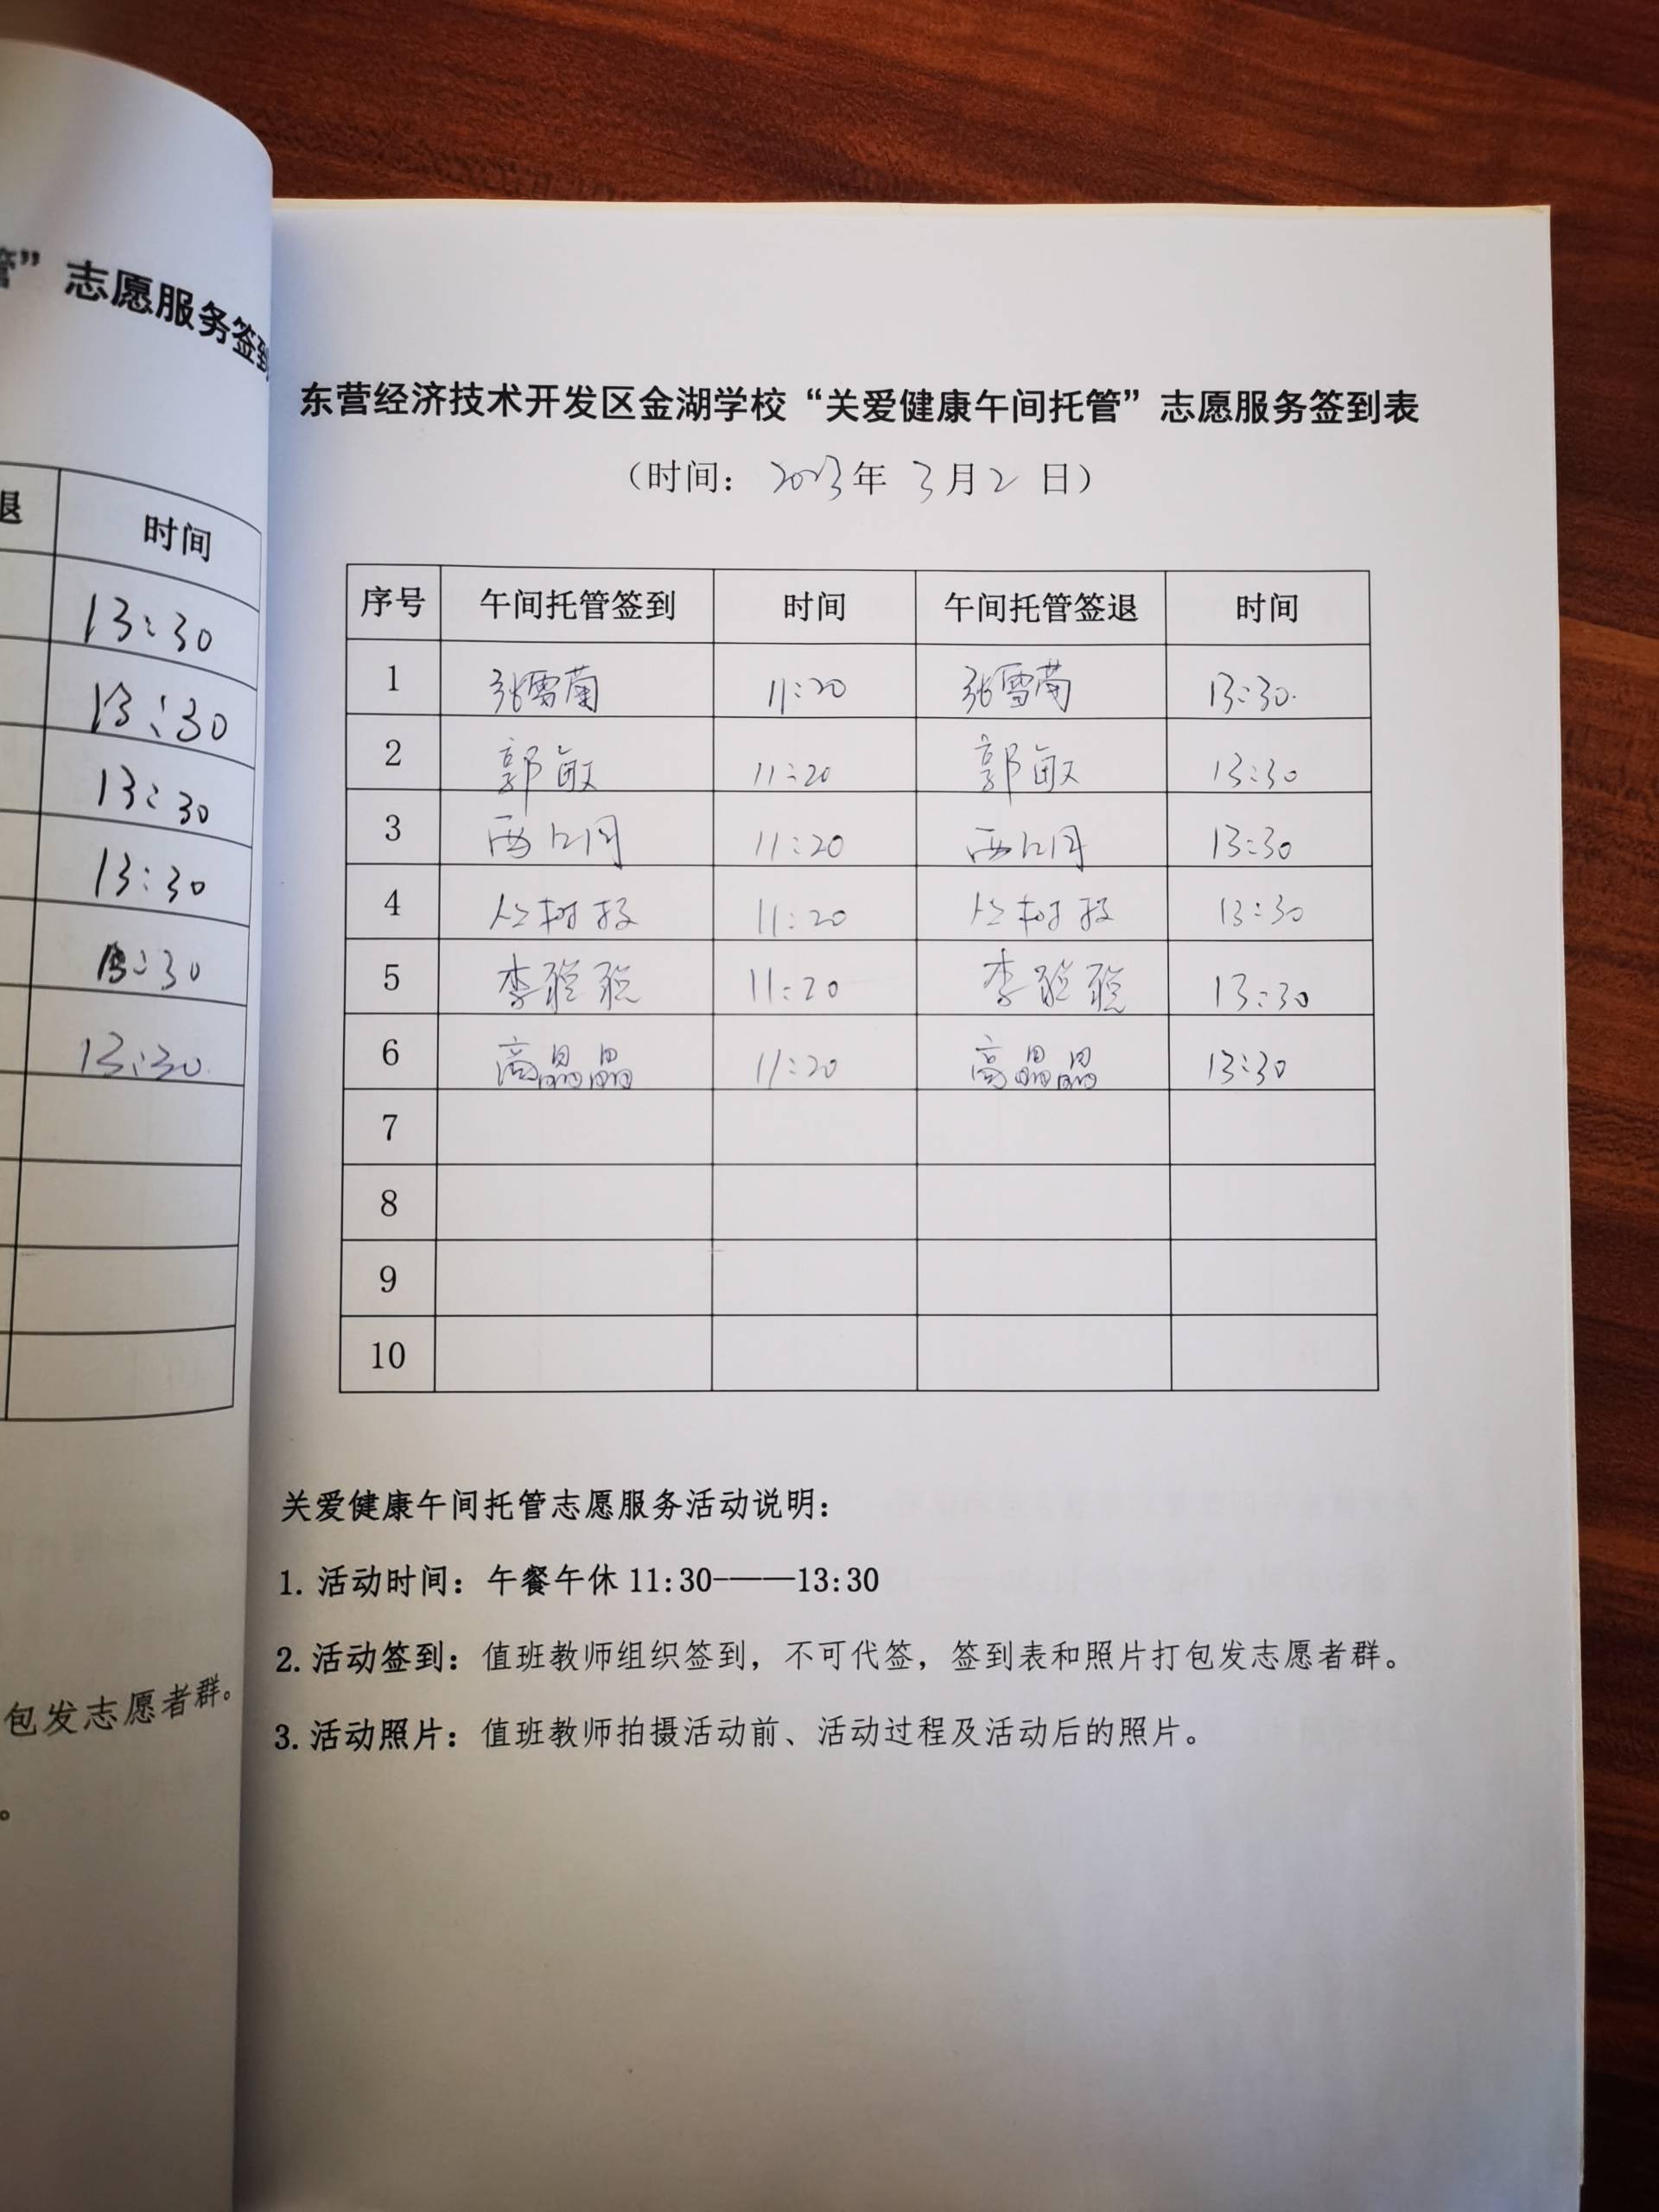 管”志愿服务签到
退 时间
13:30
13:30
13:30
13:30
13:30
13:30
包发志愿者群。
。
东营经济技术开发区金湖学校“关爱健康午间托管”志愿服务签到表
（时间：2023年3月2日）
序号 午间托管签到 时间 午间托管签退 时间
1 张雪菊 11:20 张雪菊 13:30
2 郭敏 11:20 郭敏 13:30
3 11:20 13:30
4 11:20 13:30
5 李聪聪 11:20 李聪聪 13:30
6 高晶晶 11:20 高晶晶 13:30
7
8
9
10
关爱健康午间托管志愿服务活动说明：
1. 活动时间：午餐午休 11:30-——13:30
2. 活动签到：值班教师组织签到，不可代签，签到表和照片打包发志愿者群。
3. 活动照片：值班教师拍摄活动前、活动过程及活动后的照片。